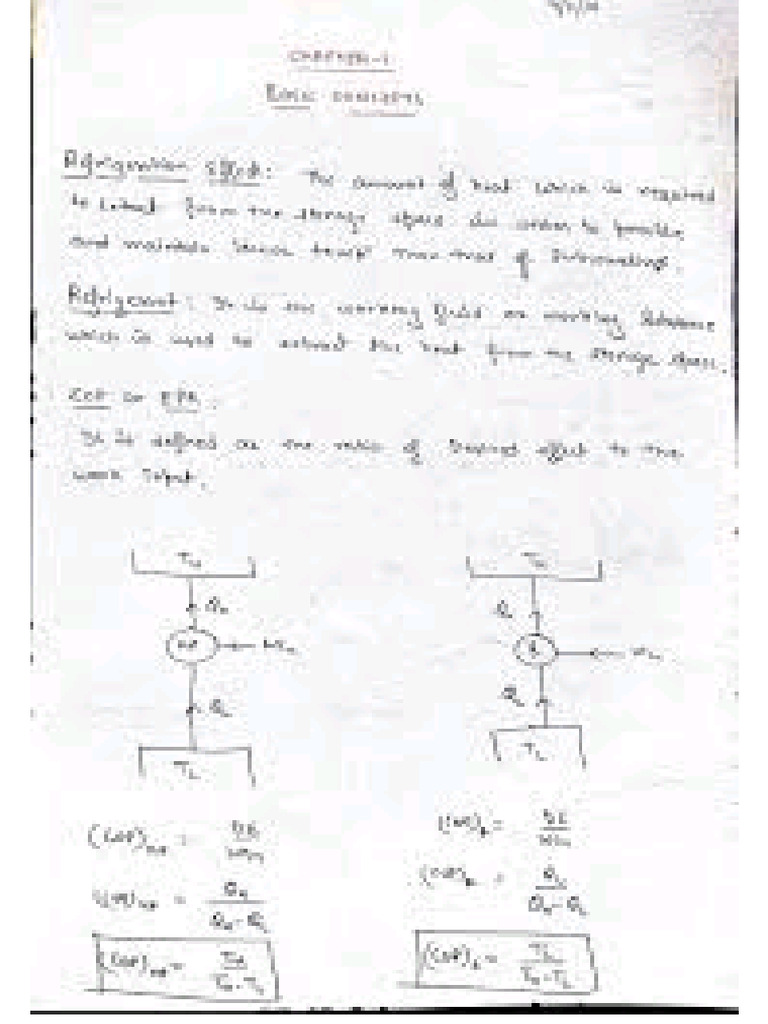 CHAPTER-1
BASIC CONCEPTS
Refrigeration Effect: The amount of heat which is required
to extract from the storage space in order to provide
and maintain lower temp than that of surroundings.
Refrigerant: It is the working fluid or working substance
which is used to extract the heat from the storage space.
COP or EPR.
It is defined as the ratio of desired effect to the
work input.
T_H T_H
Q_H Q_H
HP W_in R W_in
Q_L Q_L
T_L T_L
(COP)_HP = DE/W_in (COP)_R = DE/W_in
(COP)_HP = Q_H/(Q_H - Q_L) (COP)_R = Q_L/(Q_H - Q_L)
(COP)_HP = T_H/(T_H - T_L) (COP)_R = T_L/(T_H - T_L)